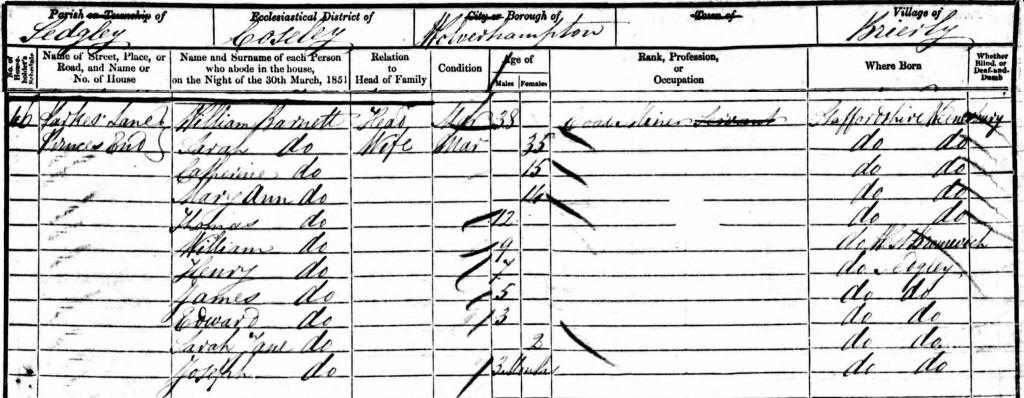 Parish or Township of Ecclesiastical District of City or Borough of Town of Village of
Sedgley Coseley Wolverhampton Brierly
No. of House-holder's Schedule Name of Street, Place, or Road, and Name or No. of House Name and Surname of each Person who abode in the house, on the Night of the 30th March, 1851 Relation to Head of Family Condition Age of Males Females Rank, Profession, or Occupation Where Born Whether Blind, or Deaf-and-Dumb
Parkes Lane William Barnett Head Mar 38 Coal Miner Staffordshire Wednesbury
Princes End Sarah do Wife Mar 35 do do
Catherine do 15 do do
Mary Ann do 14 do do
Thomas do 12 do do
William do 9 do W Bromwich
Henry do 7 do Sedgley
James do 5 do do
Edward do 3 do do
Sarah Jane do 2 do do
Joseph do 3 Months do do